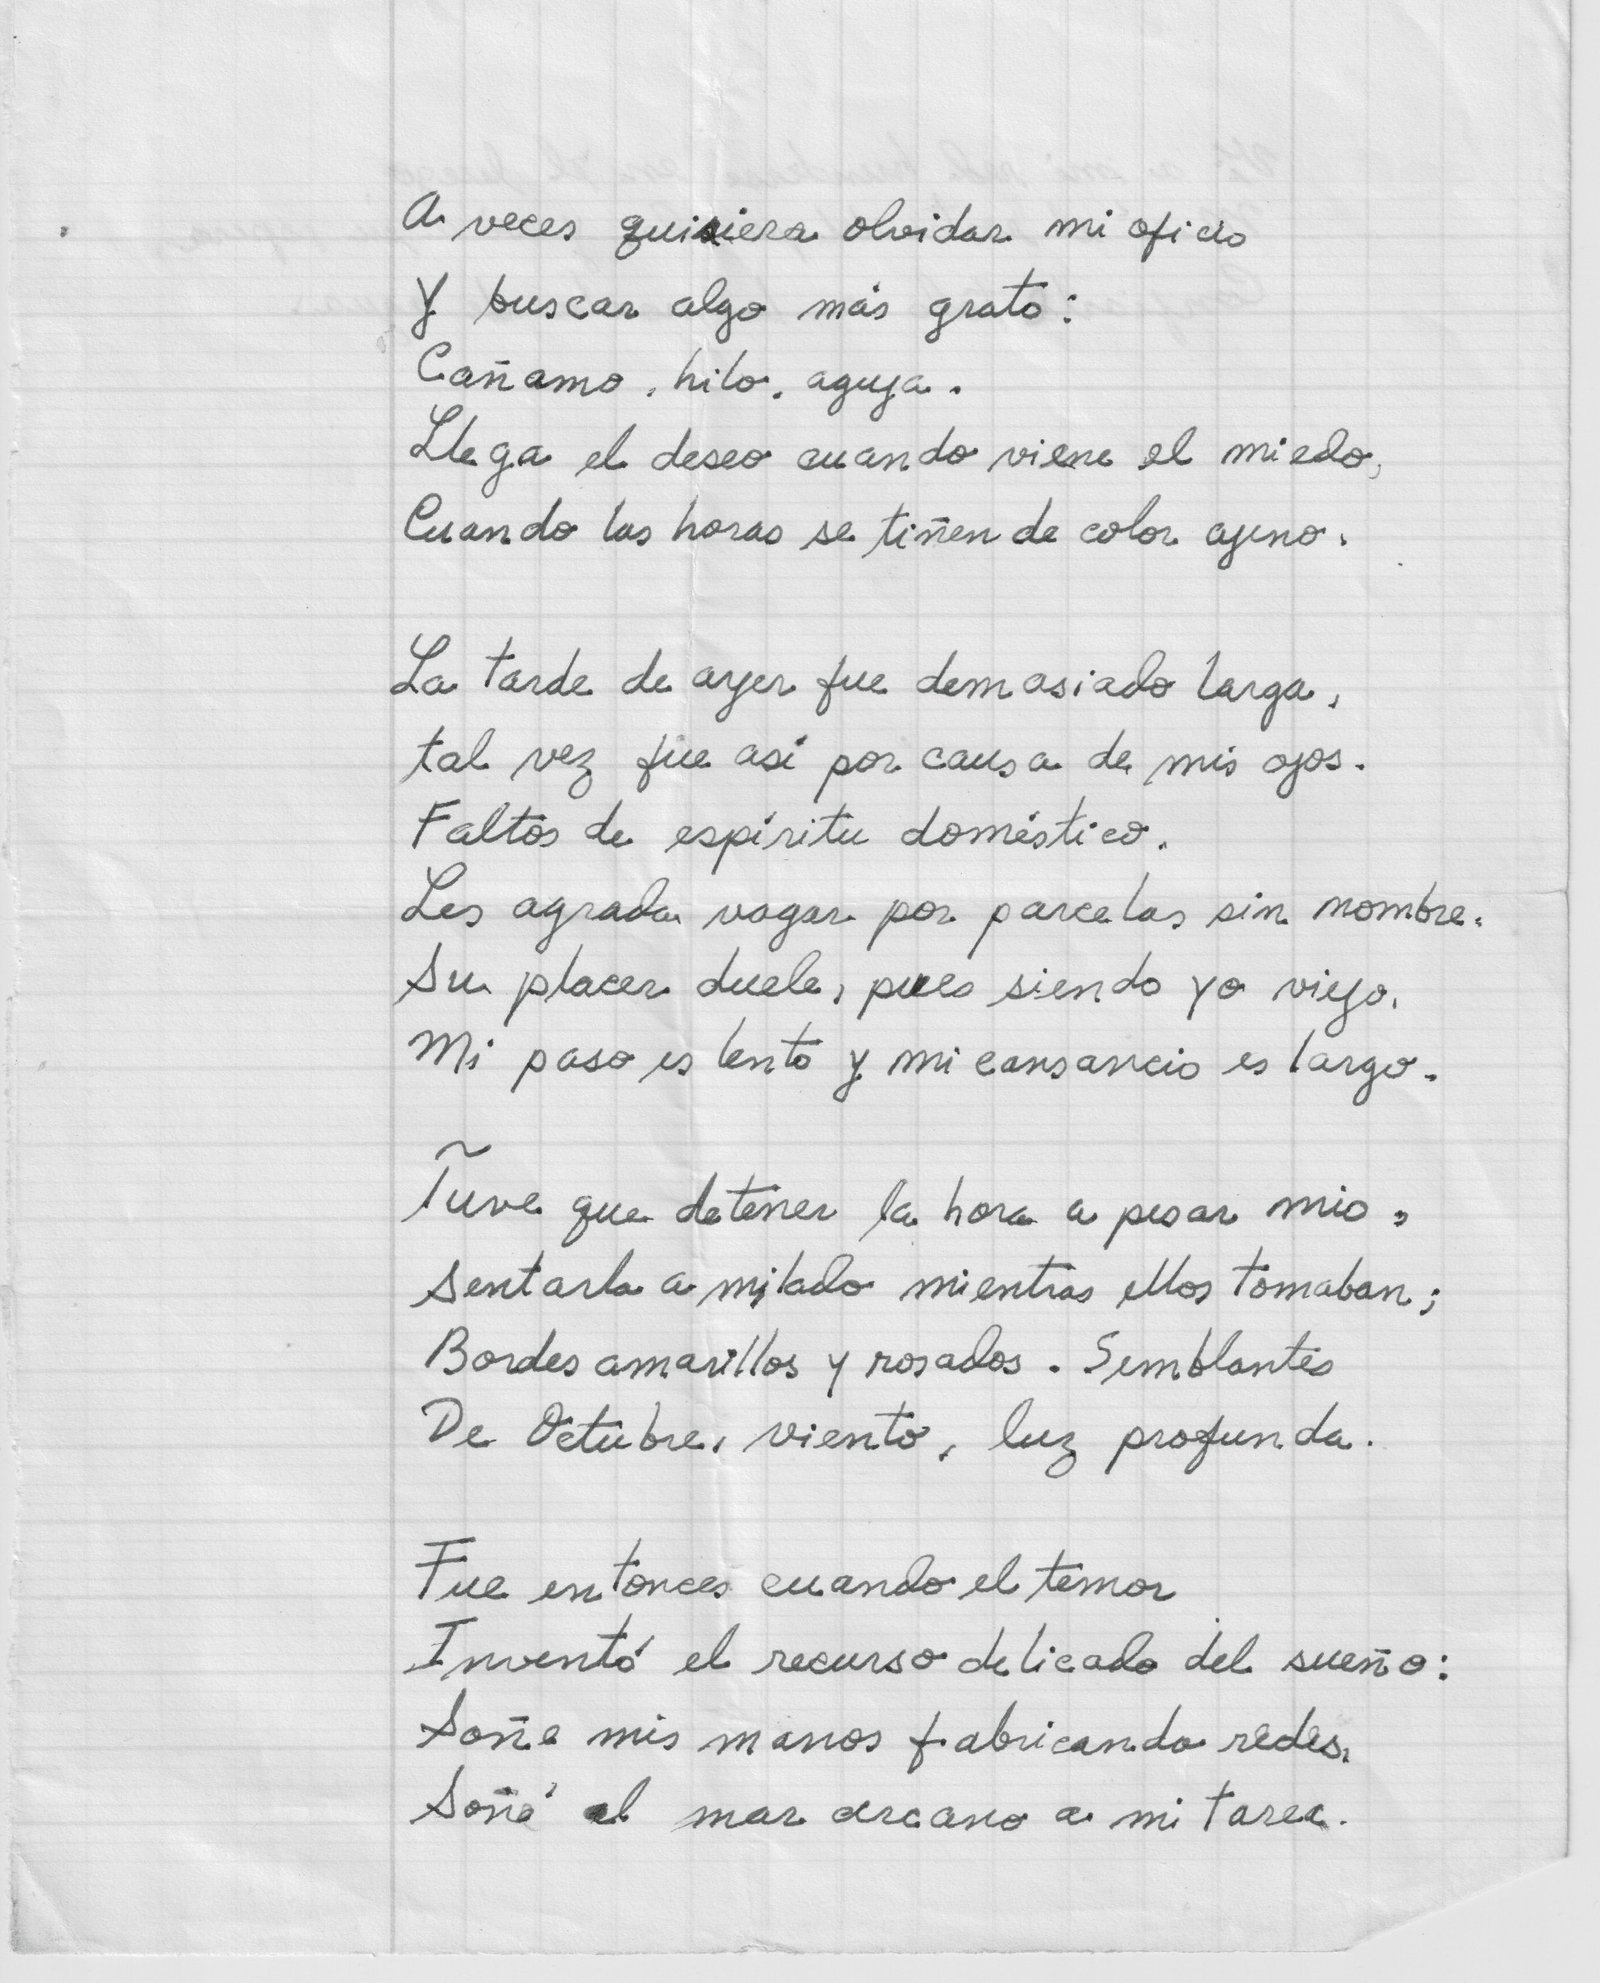 A veces quisiera olvidar mi oficio
Y buscar algo más grato:
Cañamo, hilo, aguja.
Llega el deseo cuando viene el miedo,
Cuando las horas se tiñen de color ajeno.
La tarde de ayer fue demasiado larga,
tal vez fue así por causa de mis ojos.
Faltos de espíritu doméstico.
Les agrada vagar por parcelas sin nombre.
Su placer duele, pues siendo yo viejo,
Mi paso es lento y mi cansancio es largo.
Tuve que detener la hora a pesar mio,
sentarla a mi lado mientras ellos tomaban;
Bordes amarillos y rosados. Semblantes
De Octubre, viento, luz profunda.
Fue entonces cuando el temor
Inventó el recurso delicado del sueño:
Soñe mis manos fabricando redes,
Soñé el mar arcano a mi tarea.